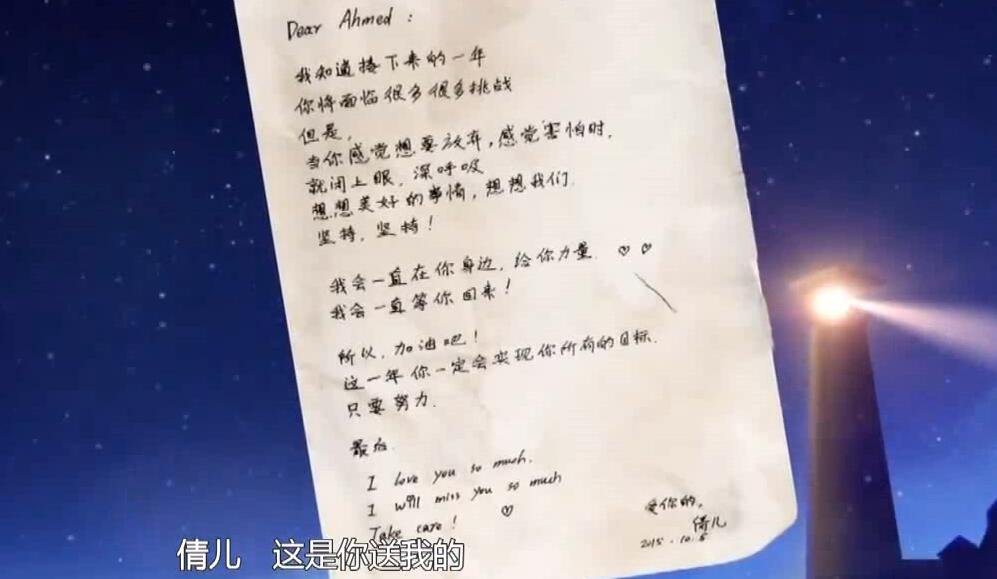 Dear Ahmed :
我知道接下来的一年
你将面临很多很多挑战
但是,
当你感觉想要放弃,感觉害怕时,
就闭上眼,深呼吸
想想美好的事情,想想我们.
坚持,坚持!
我会一直在你身边,给你力量. ♡ ♡
我会一直等你回来!
所以,加油吧!
这一年你一定会实现你所有的目标.
只要努力.
最后.
I love you so much.
I will miss you so much
Take care! ♡
爱你的,
倩儿
2015.10.5
倩儿 这是你送我的